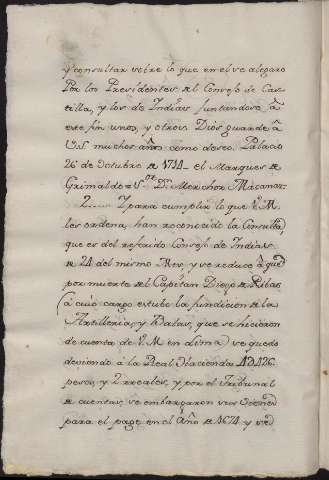 y consultar sobre lo que en el se alegare
Por los Presidentes de el Consejo de Cas-
tilla, y los de Indias juntandose à
este fin unos, y otros Dios guarde à
US muchos años como deseo. Palacio
26 de Octubre de 1714 el Marques de
Grimaldo = S.or Dn. Merchor Macanaz
2...... Y para cumplir lo que V. M.
les ordena, han reconocido la Consulta,
que es del referido Consejo de Indias
de 24 del mismo Mes, y se reduce à que
por muerte de el Capitan Diego de Ribas
(à cuio cargo estubo la fundicion de la
Artilleria, y Balas, que se hicieron
de cuenta de V. M en Lima) se quedo
deviendo à la Real Hacienda
pesos, y 2 reales, y por el Tribunal
de cuentas, se embargaron sus vienes
para el pago en el Año de 1674 y